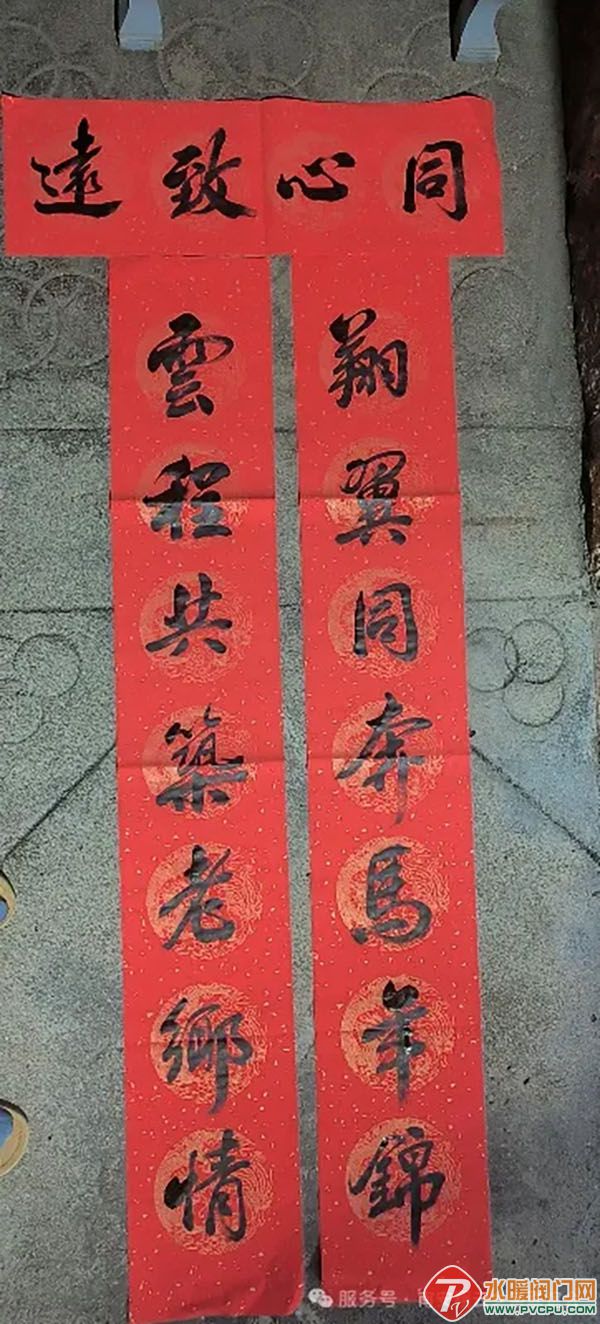 同心致遠
翔翼同奔馬年錦
雲程共築老鄉情
服务号
水暖阀门网
WWW.PVCPU.COM